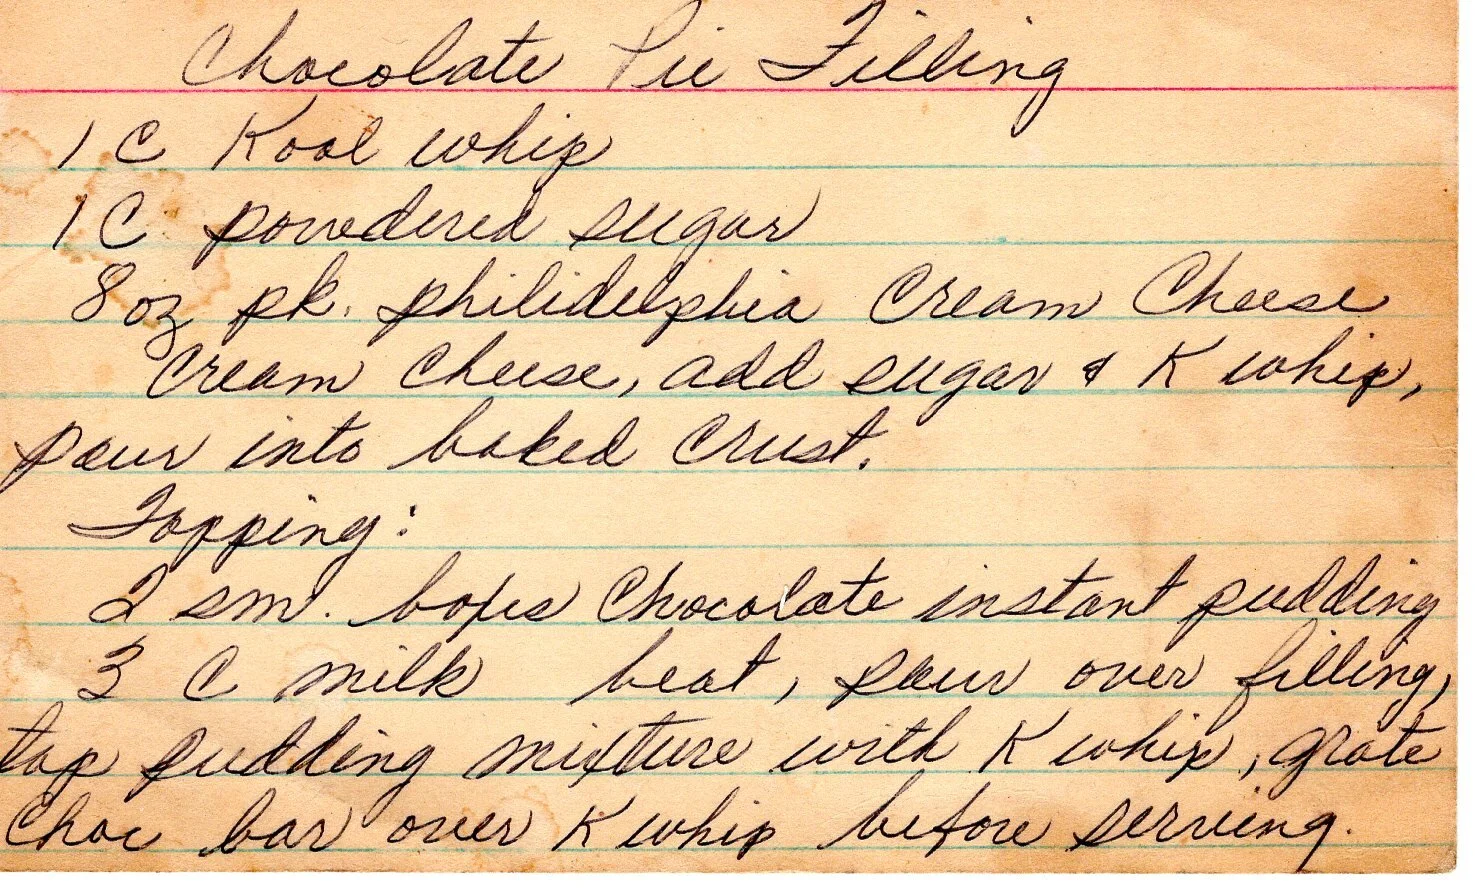 Chocolate Pie Filling
1 C Kool whip
1 C powdered sugar
8 oz pk. philidelphia Cream Cheese
Cream Cheese, add sugar & K whip,
pour into baked Crust.
Topping:
2 sm. boxes Chocolate instant pudding
3 C milk beat, pour over filling,
top pudding mixture with K whip, grate
Choc bar over K whip before serving.